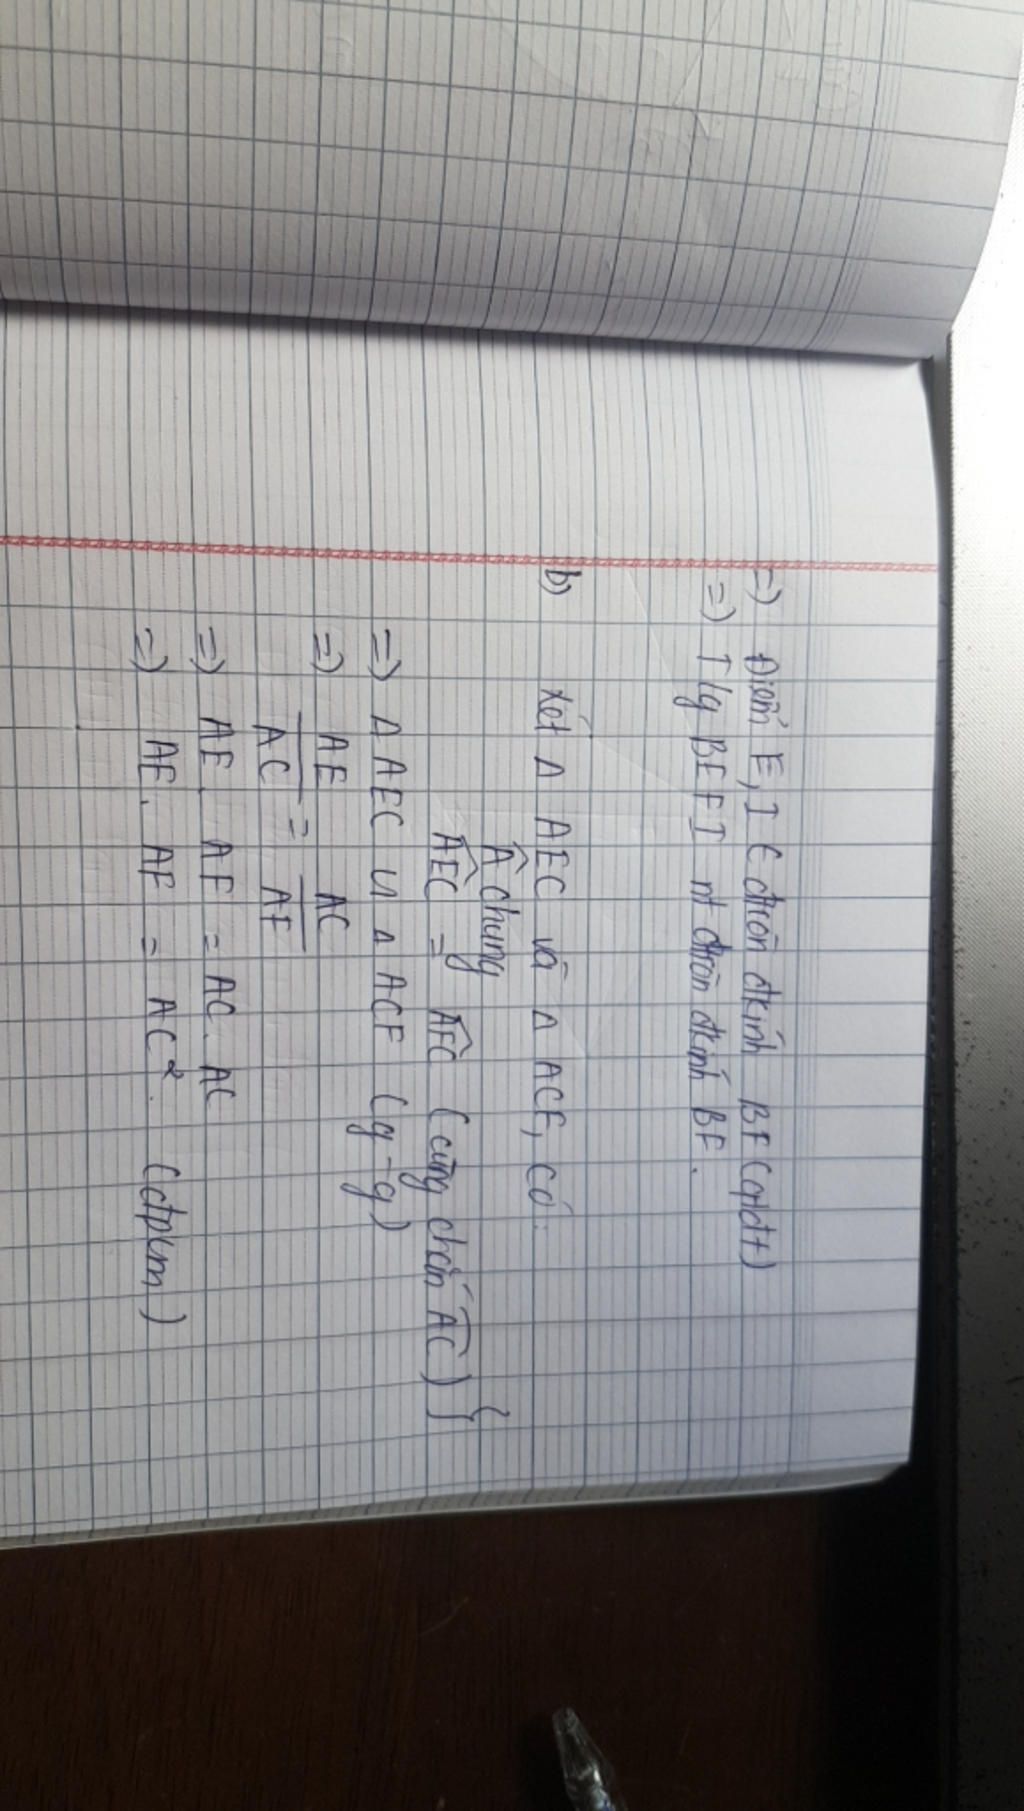 =) Điểm E, I ∈ đtròn đkính BF (qhđt)
=) Tlg BEFI nt đtròn đkính BF.
b) Xét Δ AEC và Δ ACF, có:
Â chung
AÊC = AF̂C (cùng chắn AC) }
=) Δ AEC ∽ Δ ACF (g-g)
=) AE/AC = AC/AF
=) AE. AF = AC. AC
=) AE. AF = AC². (đpcm)